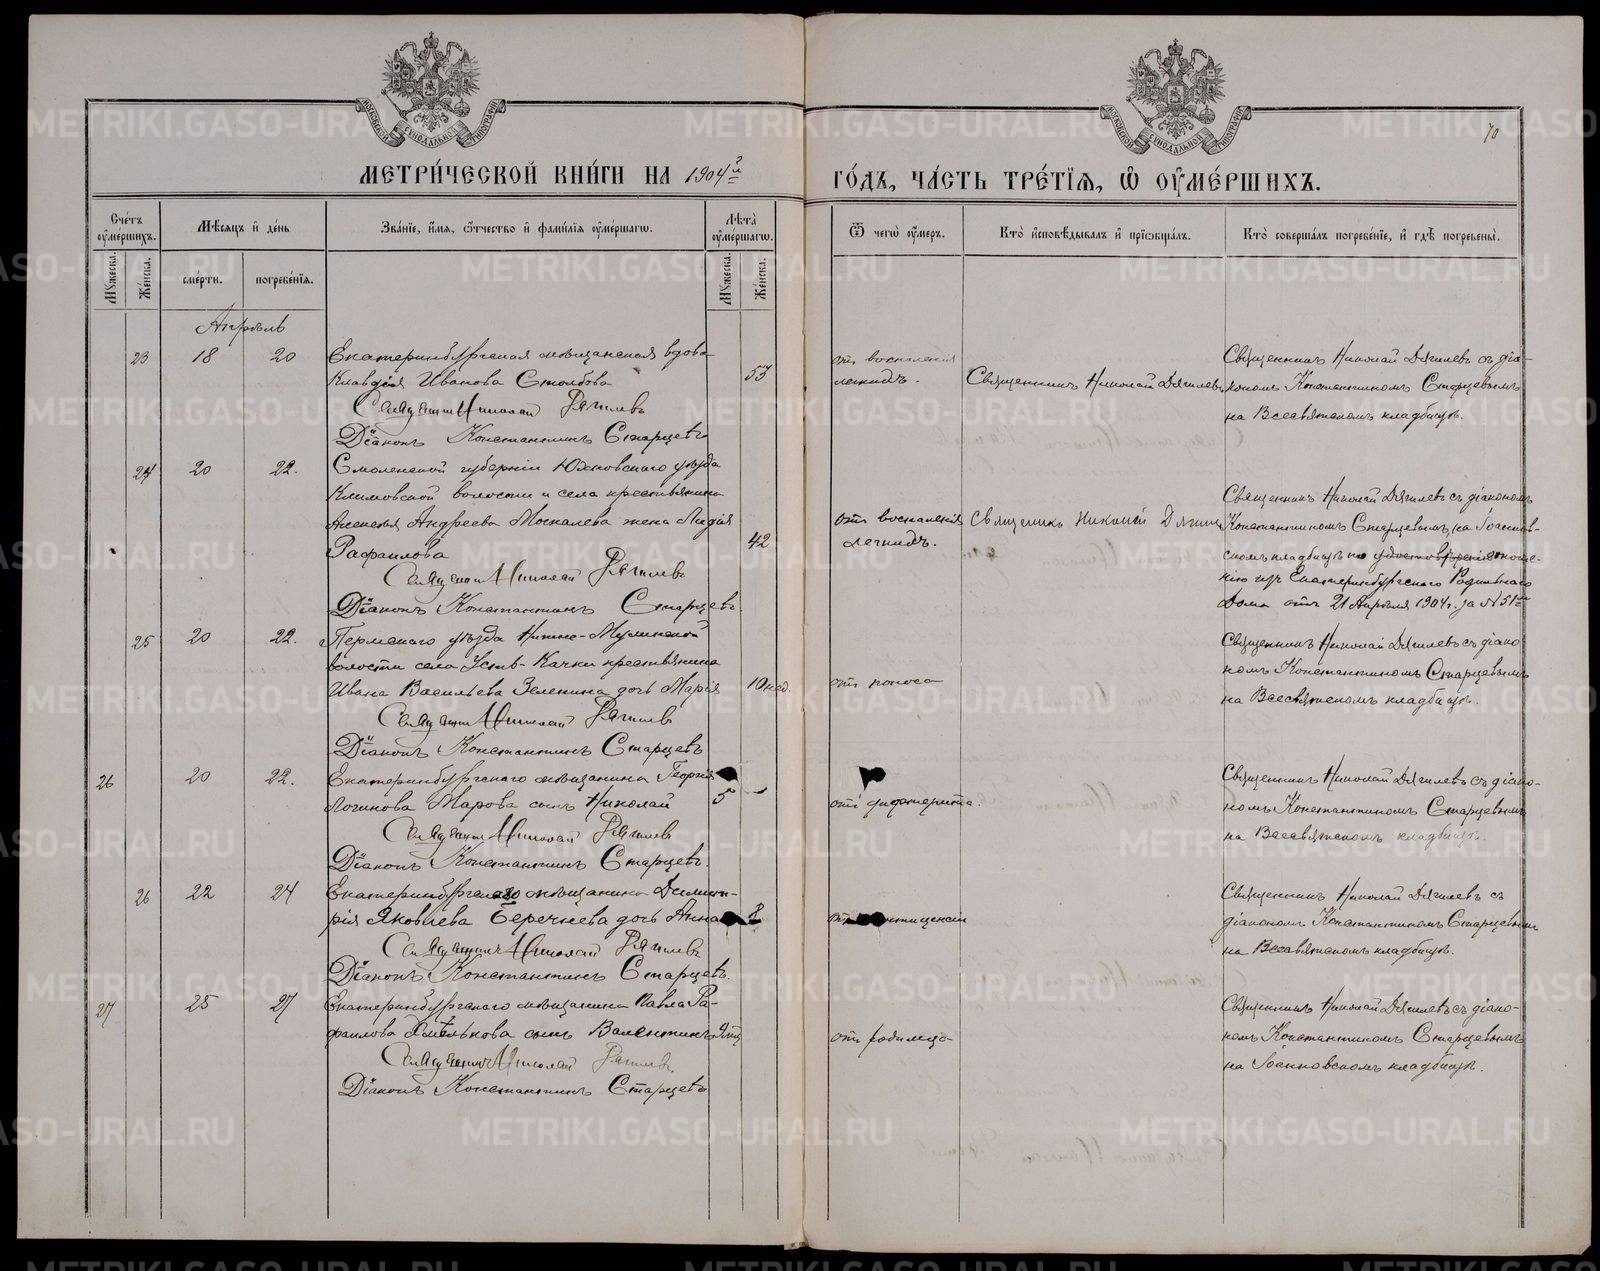 МОСКОВСКОЙ СѴНОДАЛЬНОЙ ТИПОГРАФІИ
МОСКОВСКОЙ СѴНОДАЛЬНОЙ ТИПОГРАФІИ
70
МЕТРИ́ЧЕСКОЙ КНИ́ГИ НА 1904й
ГО́ДЪ, ЧА́СТЬ ТРЕ́ТІѦ, Ѡ ОУМЕ́РШИХЪ.
Сче́тъ оуме́ршихъ.
Мѣ́сѧцъ и де́нь
Зва́ніе, и́мѧ, ѻ҆́тчество и фамилі́ѧ оуме́ршагѡ.
Лѣ́та оуме́ршагѡ.
Ѿ чегѡ̀ оу́меръ.
Кто̀ исповѣ́дывалъ и прїѡбща́лъ.
Кто̀ соверша́лъ погребе́ніе, и гдѣ̀ погребены̀.
Мꙋ́жеска.
Же́нска.
сме́рти.
погребе́нїѧ.
Мꙋ́жеска.
Же́нска.
Апрѣль
23 18 20 Екатеринбургская мѣщанская вдова
Клавдія Иванова Столбова 53
Священникъ Николай Дягилевъ
Діаконъ Константинъ Старцевъ
отъ воспаленія
легкихъ.
Священникъ Николай Дягилевъ
Священникъ Николай Дягилевъ съ діа-
кономъ Константиномъ Старцевымъ
на Всесвятскомъ кладбищѣ.
24 20 22. Смоленской губерніи Юхновскаго уѣзда
Климовской волости и села крестьянина
Алексѣя Андреева Москалева жена Лидія
Рафаилова 42
Священникъ Николай Дягилевъ
Діаконъ Константинъ Старцевъ
отъ воспаленія
легкихъ.
Священникъ Николай Дягилевъ
Священникъ Николай Дягилевъ съ діакономъ
Константиномъ Старцевымъ на Іоаннов-
скомъ кладбищѣ по отноше-
нію изъ Екатеринбургскаго Родильнаго
Дома отъ 21 Апрѣля 1904г. за №51й
25 20 22. Пермскаго уѣзда Нижне-Муллинской
волости села Усть-Качки крестьянина
Ивана Васильева Зеленина дочь Марія 10 нед.
Священникъ Николай Дягилевъ
Діаконъ Константинъ Старцевъ
отъ поноса
Священникъ Николай Дягилевъ съ діако-
номъ Константиномъ Старцевымъ
на Всесвятскомъ кладбищѣ.
26 20 22. Екатеринбургскаго мѣщанина Георгія
Логинова Марова сынъ Николай 5
Священникъ Николай Дягилевъ
Діаконъ Константинъ Старцевъ.
отъ дифтерита.
Священникъ Николай Дягилевъ съ діако-
номъ Константиномъ Старцевымъ
на Всесвятскомъ кладбищѣ.
26 22 24 Екатеринбургскаго мѣщанина Димит-
рія Яковлева дочь Анна 8
Священникъ Николай Дягилевъ
Діаконъ Константинъ Старцевъ.
отъ
Священникъ Николай Дягилевъ съ
діакономъ Константиномъ Старцевымъ
на Всесвятскомъ кладбищѣ.
27 25 27 Екатеринбургскаго мѣщанина Павла Ра-
фаилова сынъ Валентинъ
Священникъ Николай Дягилевъ.
Діаконъ Константинъ Старцевъ
отъ родимца
Священникъ Николай Дягилевъ съ діако-
номъ Константиномъ Старцевымъ
на Іоанновскомъ кладбищѣ.
METRIKI.GASO-URAL.RU